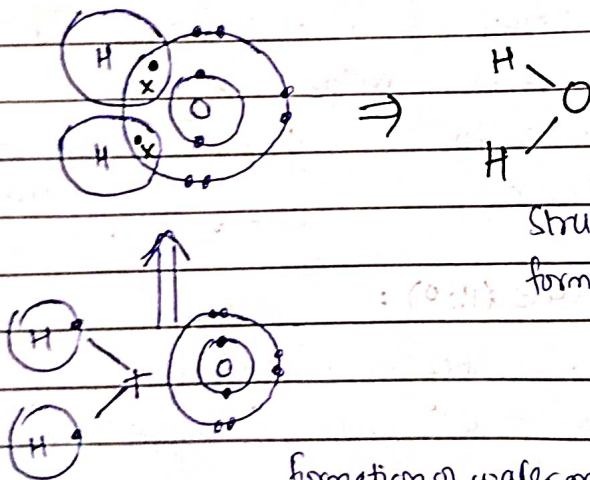 H
x
O
H
x
⇒
H
O
H
Stru
form
(H2O) :
H
+
O
H
formation of water mo